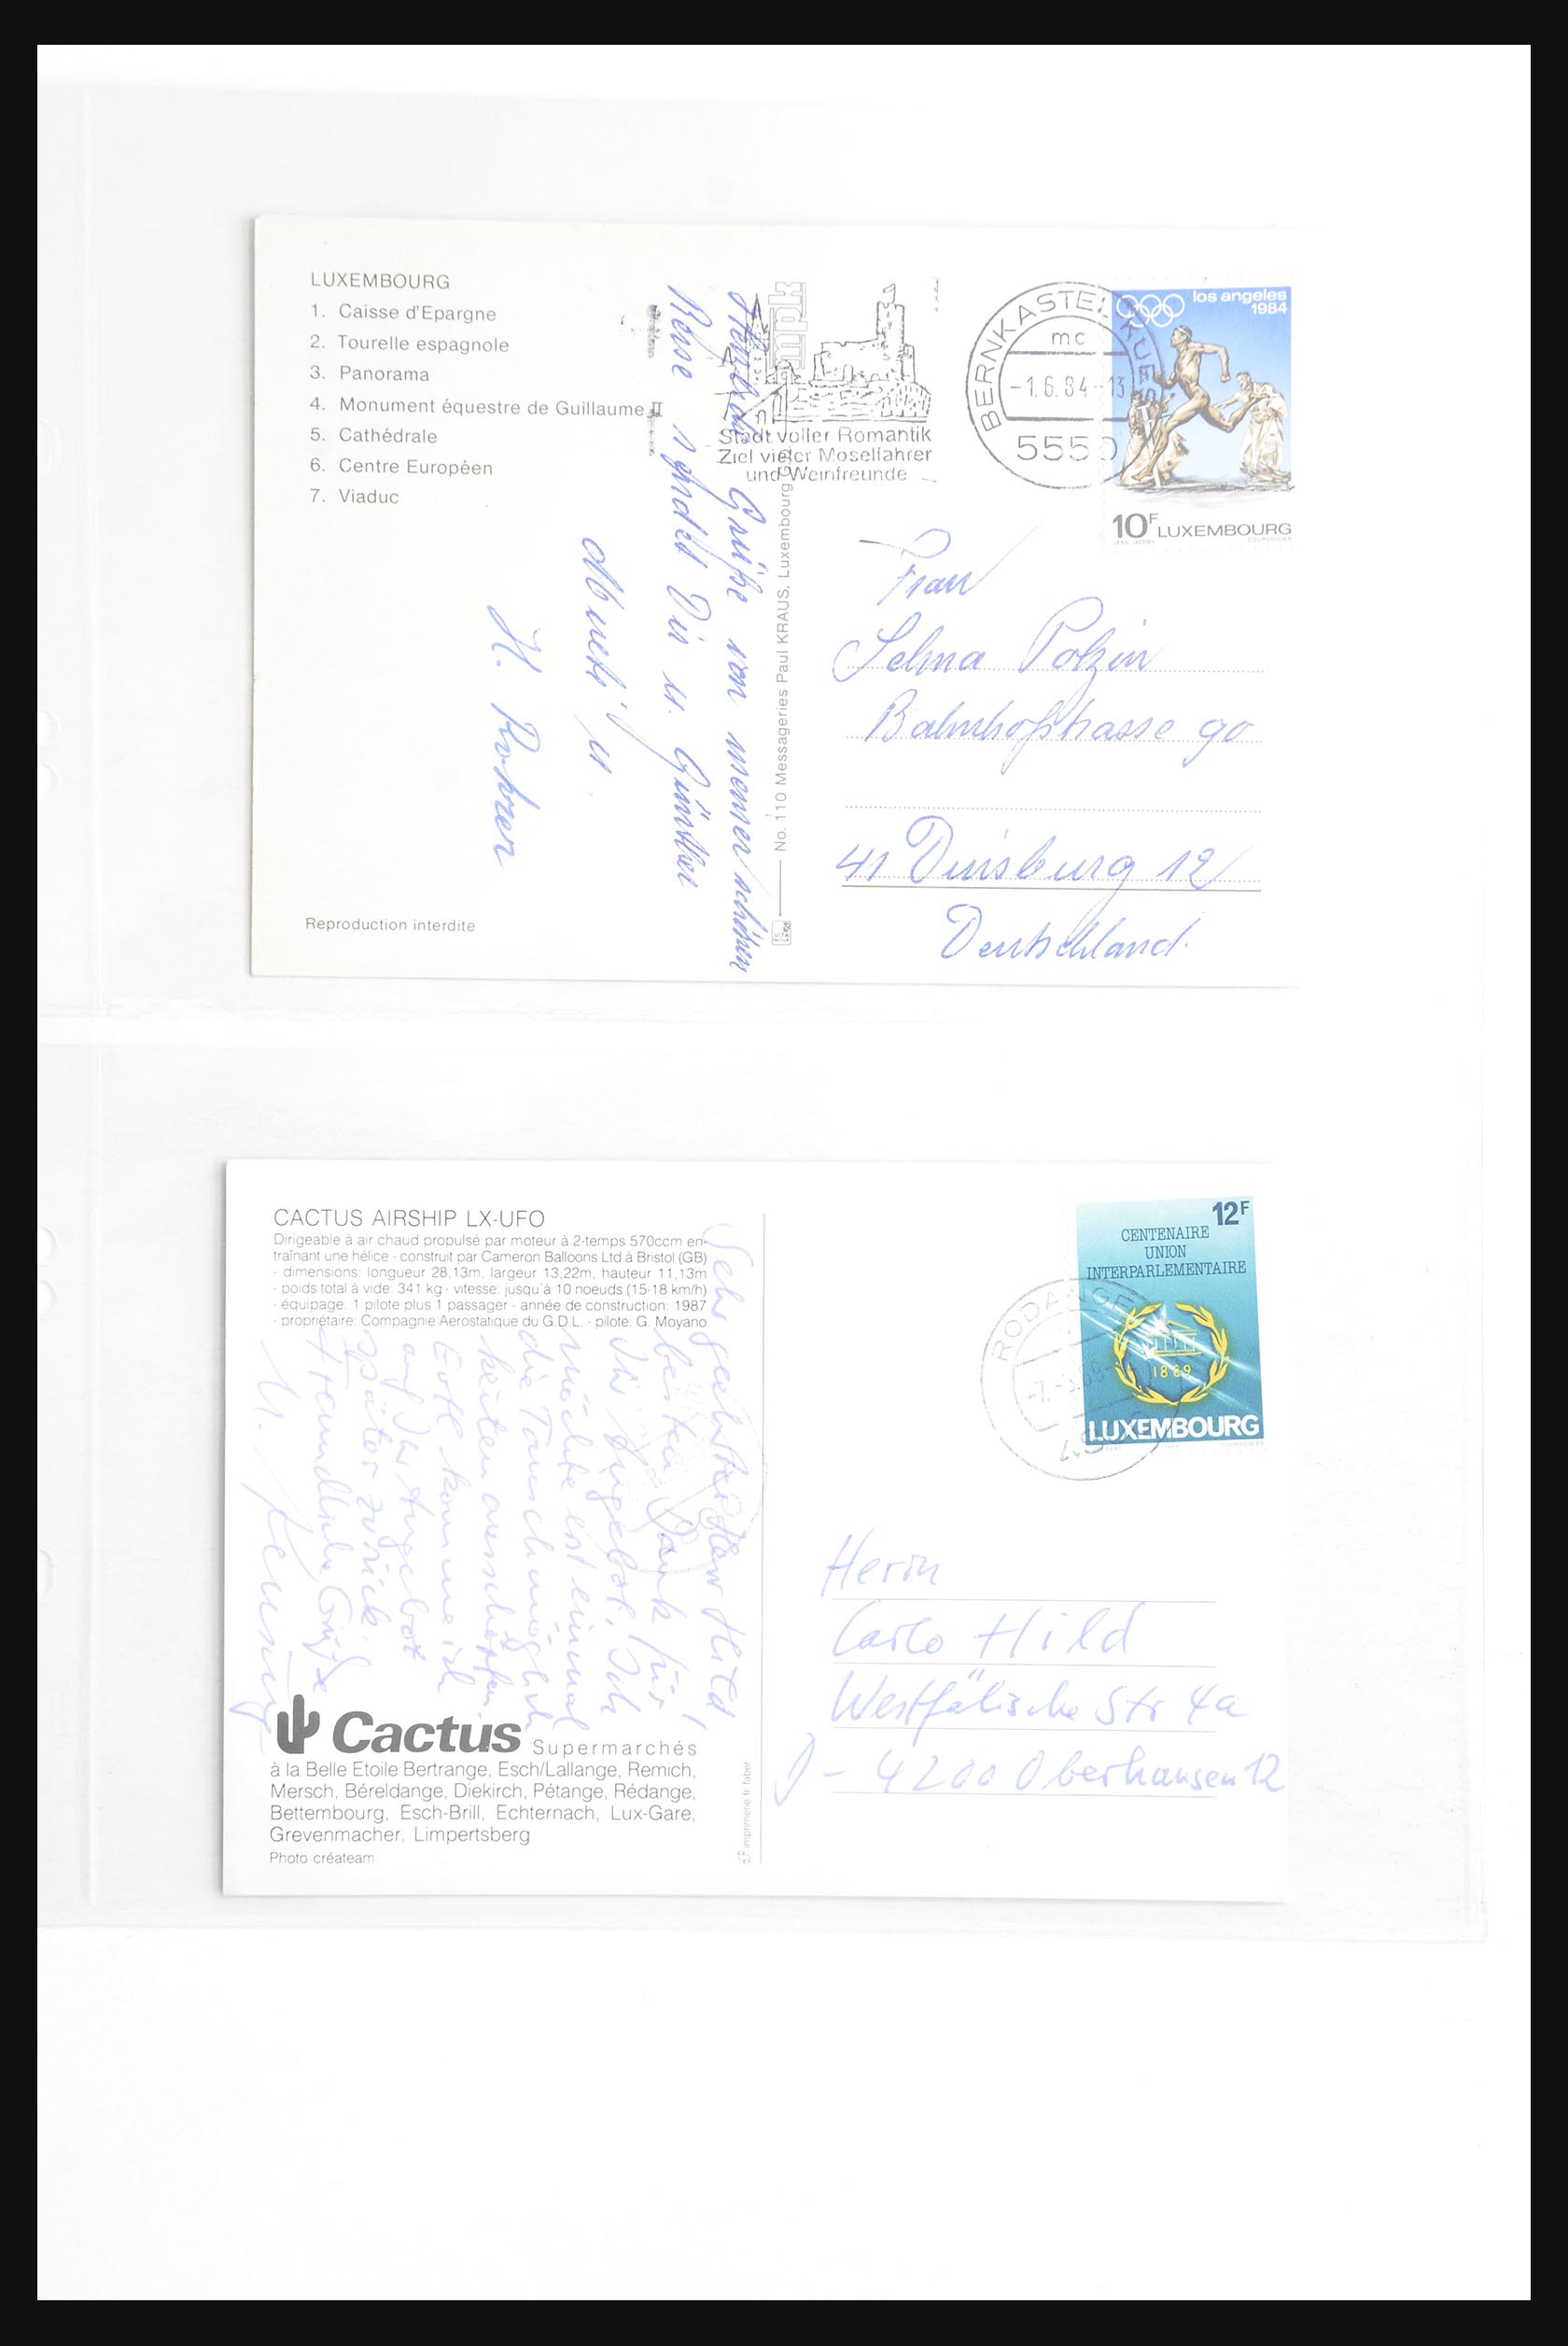 LUXEMBOURG
1. Caisse d'Epargne
2. Tourelle espagnole
3. Panorama
4. Monument équestre de Guillaume II
5. Cathédrale
6. Centre Européen
7. Viaduc
Reproduction interdite
Grüße von meiner schönen
Reise sendet Dir u. Günther
H.
No. 110 Messageries Paul KRAUS, Luxembourg
mpk
Stadt voller Romantik
Ziel vieler Moselfahrer
und Weinfreunde
BERNKASTEL-KUES
mc
-1.6.84-13
5550
los angeles
1984
10F LUXEMBOURG
JEAN JACOBY COURVOISIER
Frau
Selma Polzin
Bahnhofstrasse 90
41 Duisburg 12
Deutschland.
CACTUS AIRSHIP LX-UFO
Dirigeable à air chaud propulsé par moteur à 2-temps 570ccm en-
traînant une hélice - construit par Cameron Balloons Ltd à Bristol (GB)
- dimensions: longueur 28,13m, largeur 13,22m, hauteur 11,13m
- poids total à vide: 341 kg - vitesse: jusqu'à 10 noeuds (15-18 km/h)
- équipage: 1 pilote plus 1 passager - année de construction: 1987
- propriétaire: Compagnie Aerostatique du G.D.L. - pilote: G. Moyano
Sehr geehrter Herr Hild,
besten Dank für
Ihr Angebot. Ich
möchte erst einmal
die Tauschmöglich-
keiten ausschöpfen.
Evtl. komme ich
auf Ihr Angebot
später zurück.
Freundliche Grüße
Cactus Supermarchés
à la Belle Etoile Bertrange, Esch/Lallange, Remich,
Mersch, Béreldange, Diekirch, Pétange, Rédange,
Bettembourg, Esch-Brill, Echternach, Lux-Gare,
Grevenmacher, Limpertsberg
Photo créateam
imprimerie fr. faber
RODANGE
12F
CENTENAIRE
UNION
INTERPARLEMENTAIRE
1889
LUXEMBOURG
COURVOISIER
Herrn
Carlo Hild
Westfälische Str 4a
D-4200 Oberhausen 12